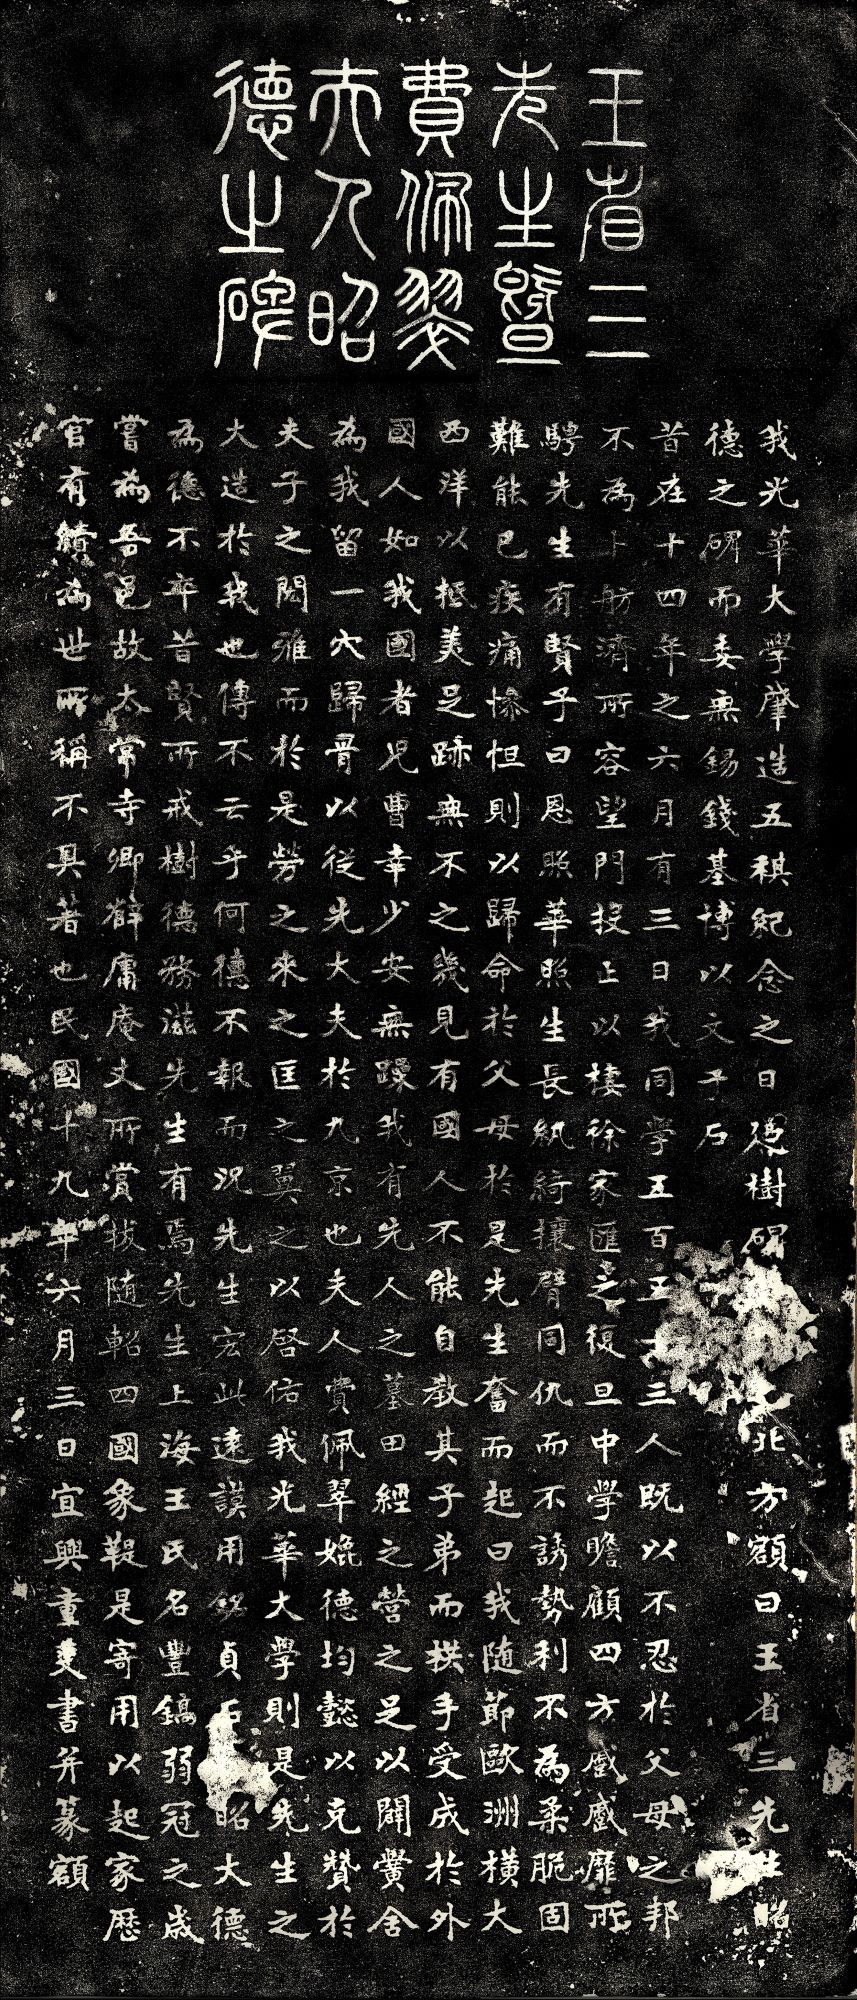 王省三
先生暨
費佩翠
夫人昭
德之碑
我光華大學肇造五稘紀念之日爰樹碑北方額曰王省三先生昭
德之碑而委無錫錢基博以文于石
昔在十四年之六月有三日我同學五百五十三人既以不忍於父母之邦
不為上舫濟所容望門投止以棲徐家匯之復旦中學瞻顧四方蹙蹙靡所
騁先生有賢子曰恩照華照生長紈綺攘臂同仇而不誘勢利不為柔脆固
難能已疾痛慘怛則以歸命於父母於是先生奮而起曰我隨節歐洲橫大
西洋以抵美足跡無不之幾見有國人不能自教其子弟而拱手受成於外
國人如我國者兒曹幸少安無躁我有先人之墓田經之營之足以闢黌舍
為我留一穴歸骨以從先大夫於九京也夫人費佩翠媲德均懿以克贊於
夫子之閎雅而於是勞之來之匡之翼之以啓佑我光華大學則是先生之
大造於我也傳不云乎何德不報而況先生宏此遠謨用銘貞石昭大德
為德不卒昔賢所戒樹德務滋先生有焉先生上海王氏名豐鎬弱冠之歲
嘗為吾邑故太常寺卿薛庸庵丈所賞拔隨軺四國象鞮是寄用以起家歷
官有績為世所稱不具著也民國十九年六月三日宜興童斐書并篆額